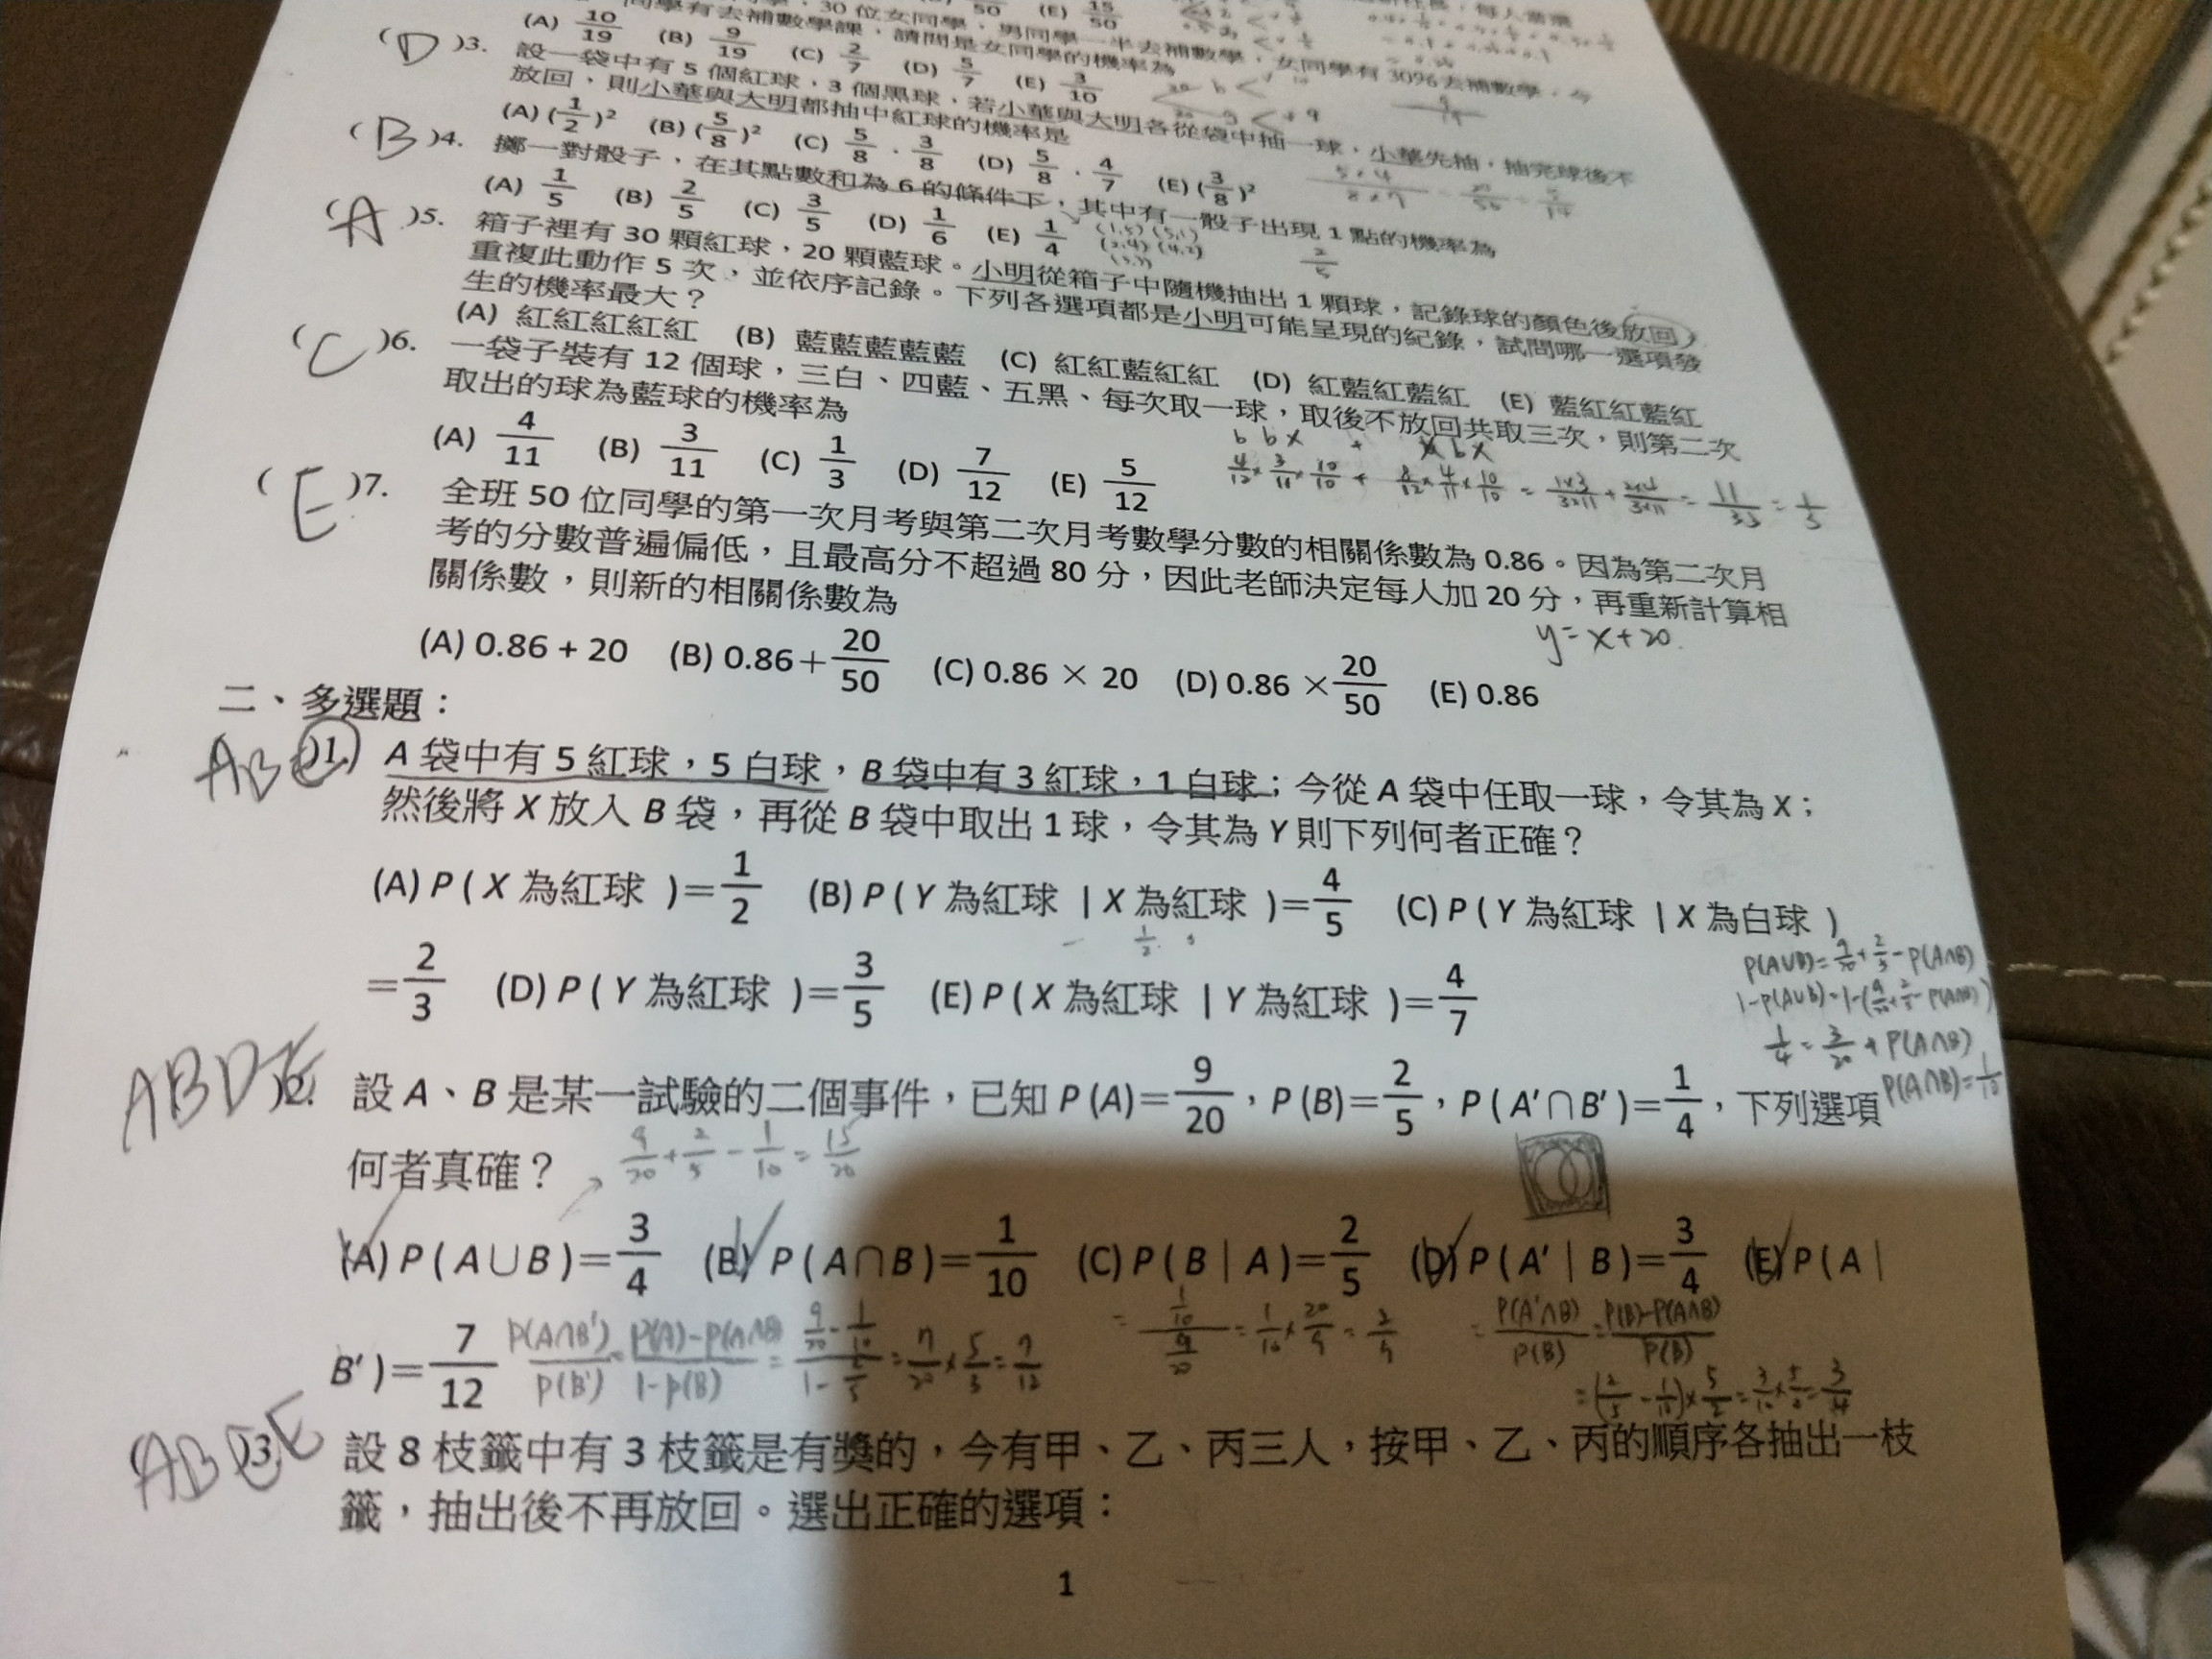 (A) 10/19 (B) 9/19 (C) 2/7 (D) 5/7 (E) 3/10
(D)3. 設一袋中有 5 個紅球，3 個黑球，若小華與大明各從袋中抽一球，小華先抽，抽完球後不
放回，則小華與大明都抽中紅球的機率是
(A) (1/2)² (B) (5/8)² (C) 5/8 · 3/8 (D) 5/8 · 4/7 (E) (3/8)²
5×4/8×7 = 20/56 = 5/14
(B)4. 擲一對骰子，在其點數和為 6 的條件下，其中有一骰子出現 1 點的機率為
(A) 1/5 (B) 2/5 (C) 3/5 (D) 1/6 (E) 1/4
(1,5) (5,1)
(2,4) (4,2)
(3,3)
2/5
(A)5. 箱子裡有 30 顆紅球，20 顆藍球。小明從箱子中隨機抽出 1 顆球，記錄球的顏色後放回，
重複此動作 5 次，並依序記錄。下列各選項都是小明可能呈現的紀錄，試問哪一選項發
生的機率最大？
(A) 紅紅紅紅紅 (B) 藍藍藍藍藍 (C) 紅紅藍紅紅 (D) 紅藍紅藍紅 (E) 藍紅紅藍紅
(C)6. 一袋子裝有 12 個球，三白、四藍、五黑、每次取一球，取後不放回共取三次，則第二次
取出的球為藍球的機率為
(A) 4/11 (B) 3/11 (C) 1/3 (D) 7/12 (E) 5/12
b b x + x b x
4/12 × 3/11 × 10/10 + 8/12 × 4/11 × 10/10 = 1×3/3×11 + 2×4/3×11 = 11/33 = 1/3
(E)7. 全班 50 位同學的第一次月考與第二次月考數學分數的相關係數為 0.86。因為第二次月
考的分數普遍偏低，且最高分不超過 80 分，因此老師決定每人加 20 分，再重新計算相
關係數，則新的相關係數為
y = x + 20
(A) 0.86 + 20 (B) 0.86＋20/50 (C) 0.86 × 20 (D) 0.86 ×20/50 (E) 0.86
二、多選題：
ABC )1. A 袋中有 5 紅球，5 白球，B 袋中有 3 紅球，1 白球；今從 A 袋中任取一球，令其為 X；
然後將 X 放入 B 袋，再從 B 袋中取出 1 球，令其為 Y 則下列何者正確？
(A) P ( X 為紅球 )＝1/2 (B) P ( Y 為紅球 | X 為紅球 )＝4/5 (C) P ( Y 為紅球 | X 為白球 )
＝2/3 (D) P ( Y 為紅球 )＝3/5 (E) P ( X 為紅球 | Y 為紅球 )＝4/7
P(A∪B) = 9/20 + 2/5 - P(A∩B)
1-P(A∪B) = 1-(9/20 + 2/5 - P(A∩B))
1/4 = 3/20 + P(A∩B)
P(A∩B) = 1/10
ABDE )2. 設 A、B 是某一試驗的二個事件，已知 P (A)＝9/20，P (B)＝2/5，P ( A′∩B′ )＝1/4，下列選項
何者真確？
9/20 + 2/5 - 1/10 = 15/20
(A) P ( A∪B )＝3/4 (B) P ( A∩B )＝1/10 (C) P ( B | A )＝2/5 (D) P ( A′ | B )＝3/4 (E) P ( A |
B′ )＝7/12
P(A∩B')/P(B') = P(A)-P(A∩B)/1-P(B) = 9/20 - 1/10 / 1 - 2/5 = 7/20 × 5/3 = 7/12
= 1/10 / 9/20 = 1/10 × 20/9 = 2/9
= P(A'∩B)/P(B) = P(B)-P(A∩B)/P(B)
= (2/5 - 1/10) × 5/2 = 3/10 × 5/2 = 3/4
ABCE )3. 設 8 枝籤中有 3 枝籤是有獎的，今有甲、乙、丙三人，按甲、乙、丙的順序各抽出一枝
籤，抽出後不再放回。選出正確的選項：
1